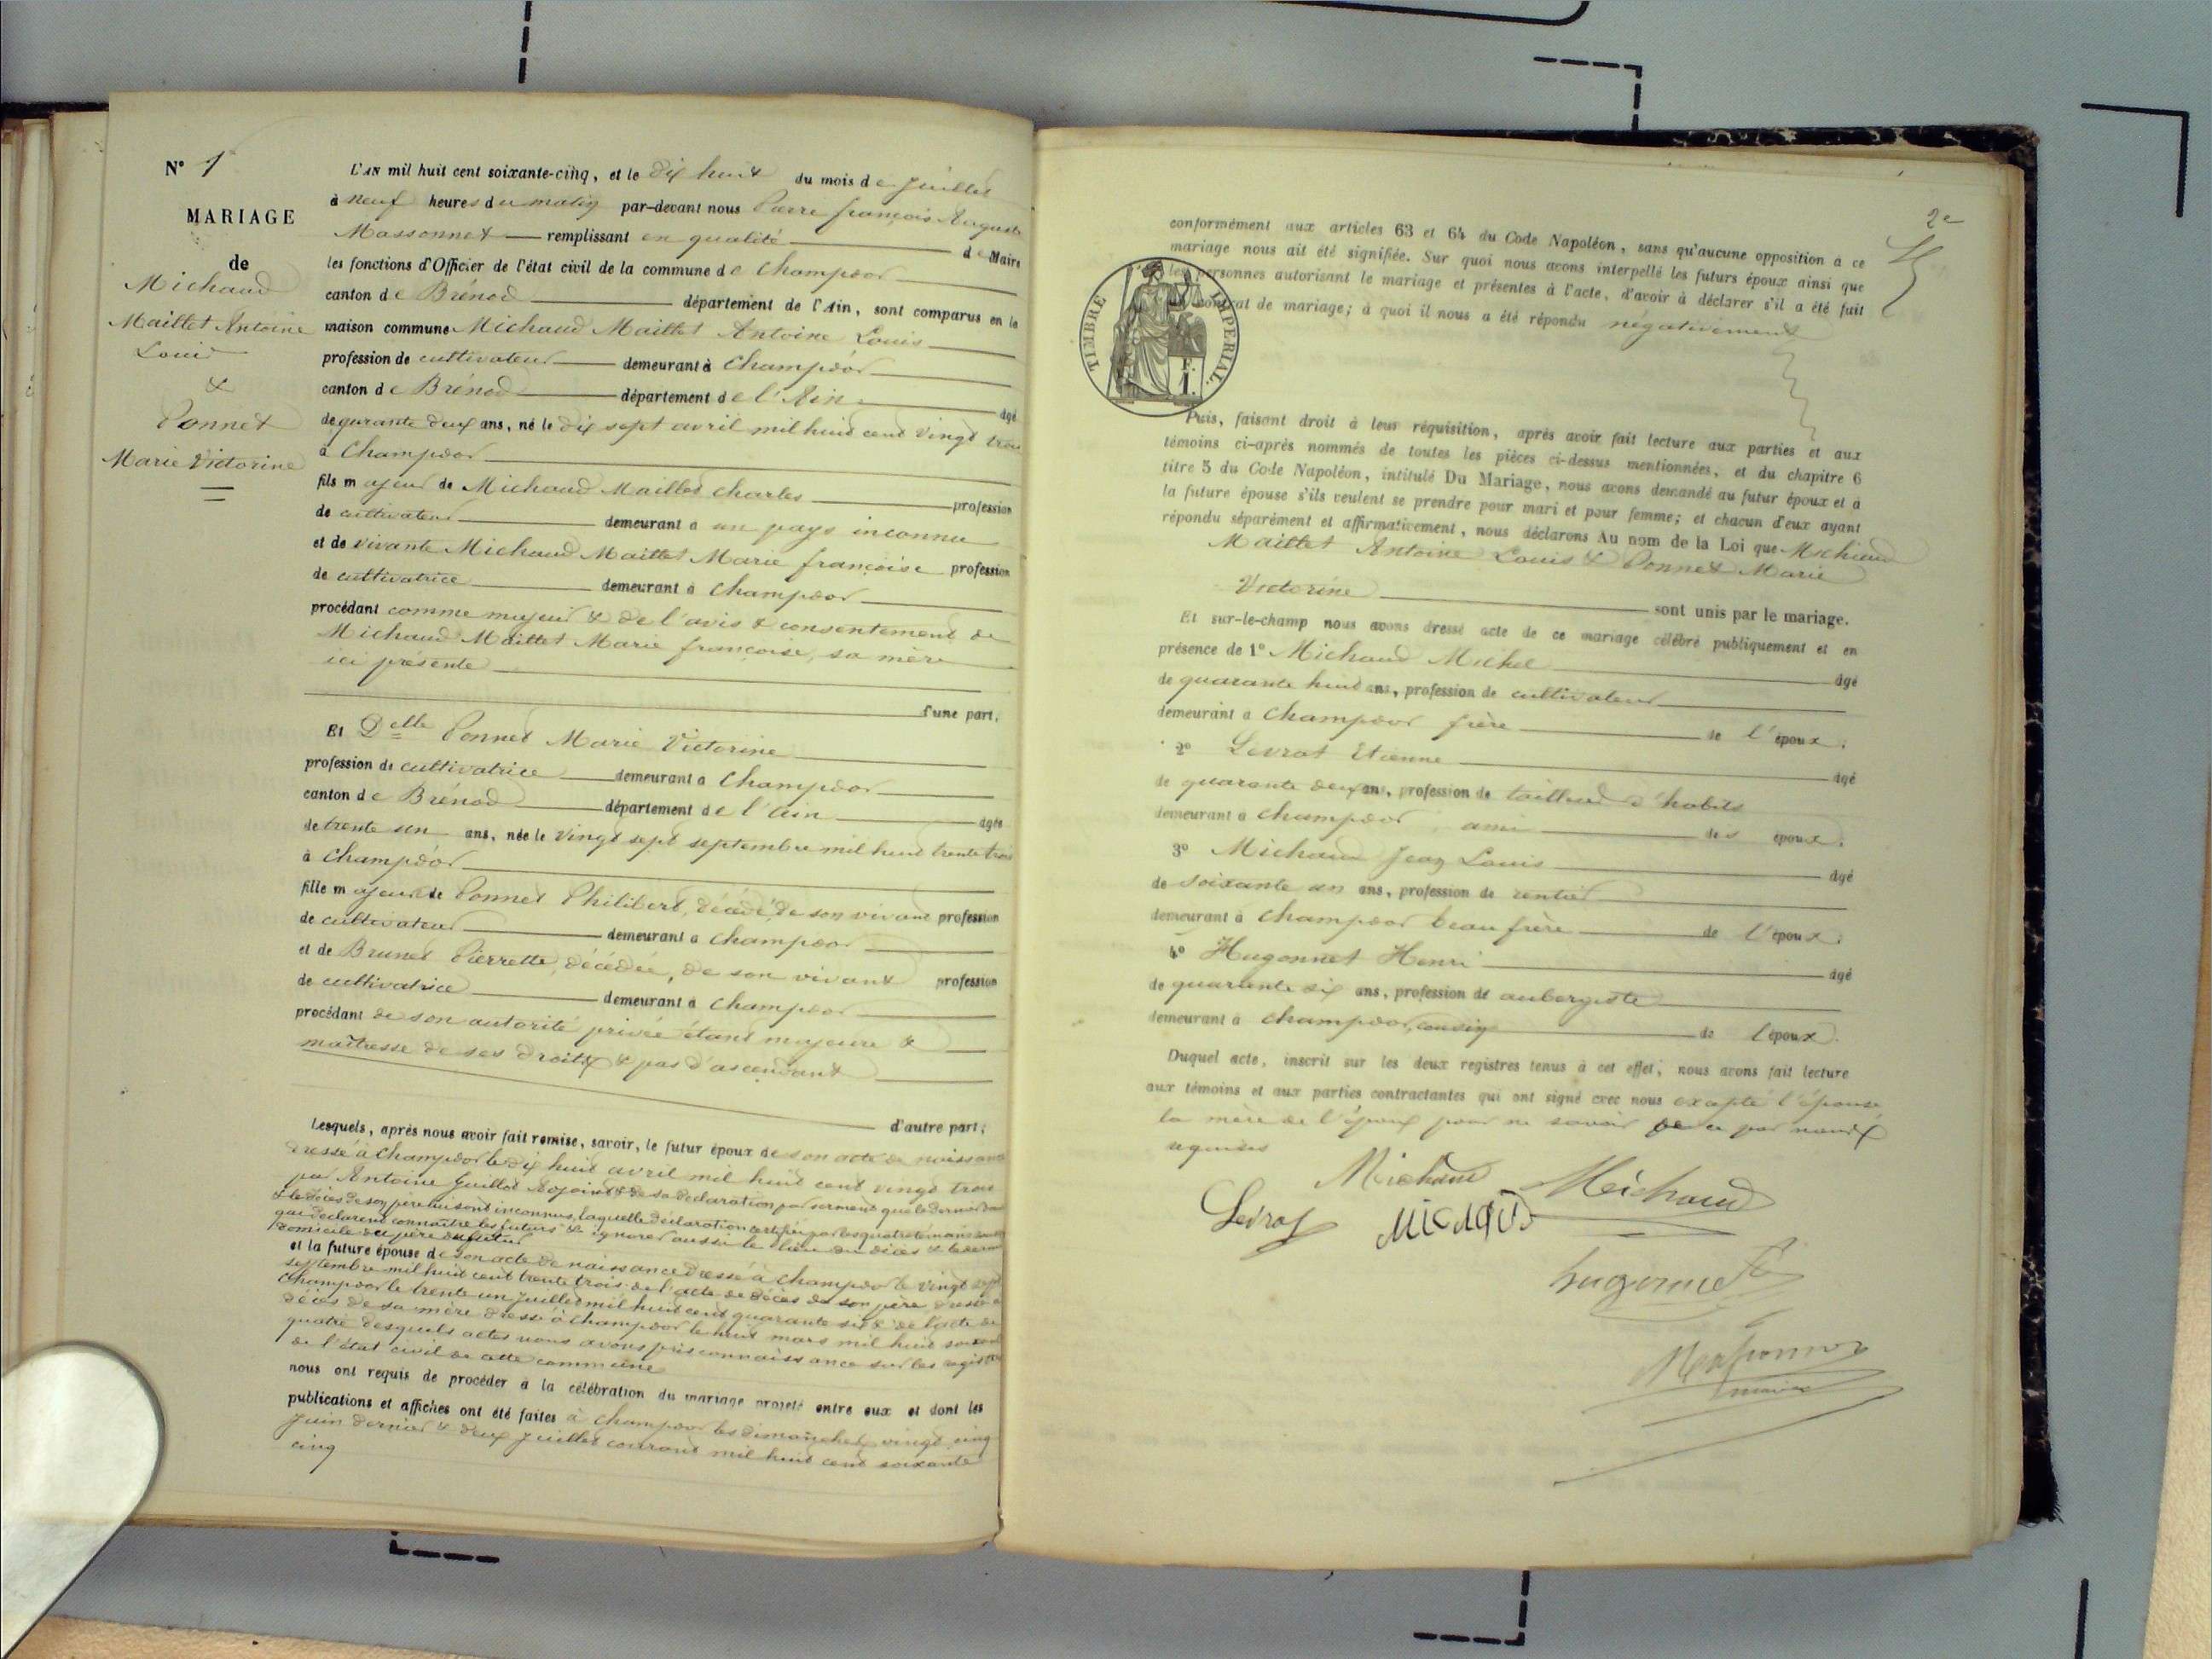 N° 1
MARIAGE
de
Michaud
Maillet Antoine
Louis
&
Ponnet
Marie Victorine
L'AN mil huit cent soixante-cinq, et le dix huit du mois de juillet
à neuf heures du matin par-devant nous Pierre françois Auguste
Massonnet remplissant en qualité de Maire
les fonctions d'Officier de l'état civil de la commune de Champdor
canton de Brénod département de l'Ain, sont comparus en la
maison commune Michaud Maillet Antoine Louis
profession de cultivateur demeurant à Champdor
canton de Brénod département de l'Ain âgé
de quarante deux ans, né le dix sept avril mil huit cent vingt trois
à Champdor
fils majeur de Michaud Maillet Charles profession
de cultivateur demeurant à un pays inconnu
et de vivante Michaud Maillet Marie françoise profession
de cultivatrice demeurant à Champdor
procédant comme majeur & de l'avis & consentement de
Michaud Maillet Marie françoise, sa mère
ici présente
d'une part.
Et Delle Ponnet Marie Victorine
profession de cultivatrice demeurant à Champdor
canton de Brénod département de l'Ain âgée
de trente un ans, née le vingt sept septembre mil huit trente trois
à Champdor
fille majeure de Ponnet Philibert, décédé, de son vivant profession
de cultivateur demeurant à Champdor
et de Brunet Pierrette, décédée, de son vivant profession
de cultivatrice demeurant à Champdor
procédant de son autorité privée étant majeure &
maîtresse de ses droits & pas d'ascendant
d'autre part;
Lesquels, après nous avoir fait remise, savoir, le futur époux de son acte de naissance
dressé à Champdor le dix huit avril mil huit cent vingt trois
par Antoine Guillot Adjoint & de sa déclaration par serment que le dernier domicile
& le décès de son père lui sont inconnus, laquelle déclaration certifiée par les quatre témoins
qui déclarent connaître les futurs & ignorer aussi le lieu du décès & le dernier
domicile du père du futur
et la future épouse de son acte de naissance dressé à Champdor le vingt sept
septembre mil huit cent trente trois, de l'acte de décès de son père dressé à
Champdor le trente un juillet mil huit cent quarante six & de l'acte de
décès de sa mère dressé à Champdor le huit mars mil huit soixante
quatre desquels actes nous avons pris connaissance sur les registres
de l'état civil de cette commune
nous ont requis de procéder à la célébration du mariage projeté entre eux et dont les
publications et affiches ont été faites à Champdor les dimanches vingt cinq
juin dernier & deux juillet courant mil huit cent soixante
cinq
2e
conformément aux articles 63 et 64 du Code Napoléon, sans qu'aucune opposition à ce
mariage nous ait été signifiée. Sur quoi nous avons interpellé les futurs époux ainsi que
les personnes autorisant le mariage et présentes à l'acte, d'avoir à déclarer s'il a été fait
un contrat de mariage; à quoi il nous a été répondu négativement
TIMBRE IMPERIAL.
F.
1.
Puis, faisant droit à leur réquisition, après avoir fait lecture aux parties et aux
témoins ci-après nommés de toutes les pièces ci-dessus mentionnées, et du chapitre 6
titre 5 du Code Napoléon, intitulé Du Mariage, nous avons demandé au futur époux et à
la future épouse s'ils veulent se prendre pour mari et pour femme; et chacun d'eux ayant
répondu séparément et affirmativement, nous déclarons Au nom de la Loi que Michaud
Maillet Antoine Louis & Ponnet Marie
Victorine sont unis par le mariage.
Et sur-le-champ nous avons dressé acte de ce mariage célébré publiquement et en
présence de 1° Michaud Michel âgé
de quarante huit ans, profession de cultivateur
demeurant à Champdor frère de l'époux.
2° Levrat Etienne âgé
de quarante deux ans, profession de tailleur d'habits
demeurant à Champdor, ami des époux.
3° Michaud Jean Louis âgé
de soixante un ans, profession de rentier
demeurant à Champdor beau frère de l'époux.
4° Hugonnet Henri âgé
de quarante six ans, profession de aubergiste
demeurant à Champdor, cousin de l'époux.
Duquel acte, inscrit sur les deux registres tenus à cet effet, nous avons fait lecture
aux témoins et aux parties contractantes qui ont signé avec nous excepté l'épouse
la mère de l'époux pour ne savoir de ce par nous
requises
Michaud Michaud
Levrat
hugonnet
Massonnet
maire